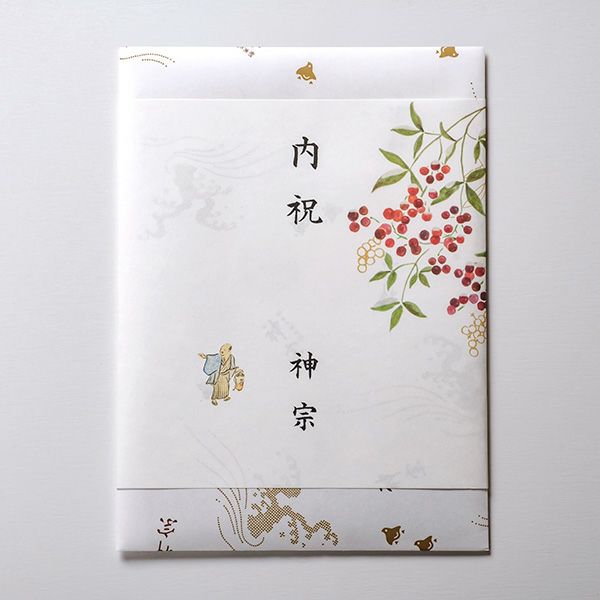 内祝
神宗